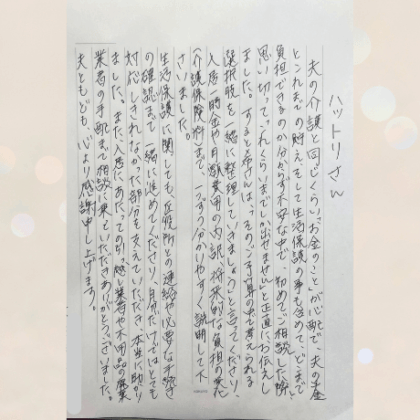 ハットリさん
夫の介護と同じくらい"お金のこと"が心配で、夫の年金
とこれまでの貯えそして生活保護の事も含めて、どこまで
負担できるのか分からず不安な中で、初めてご相談した際
思い切って「これくらいまでしか出せません」と正直にお伝えし
ました。するとハットリさんは、「そのご予算の中で考えられる
選択肢を一緒に整理していきましょう」と言ってくださり、
入居一時金や月額費用の内訳、将来的な負担の変化
(介護保険料)まで、一つずつ分かりやすく説明して下
さいました。
生活保護に関しても、役所との連絡や必要な手続き
の確認まで一緒に進めてくださり、自分だけではとても
対応しきれなかった部分を支えていただき、本当に助かり
ました。また、入居にあたっての引っ越し業者や不用品の廃棄
業者の手配まで相談に乗っていただきありがとうございました。
夫ともども、心より感謝申し上げます。